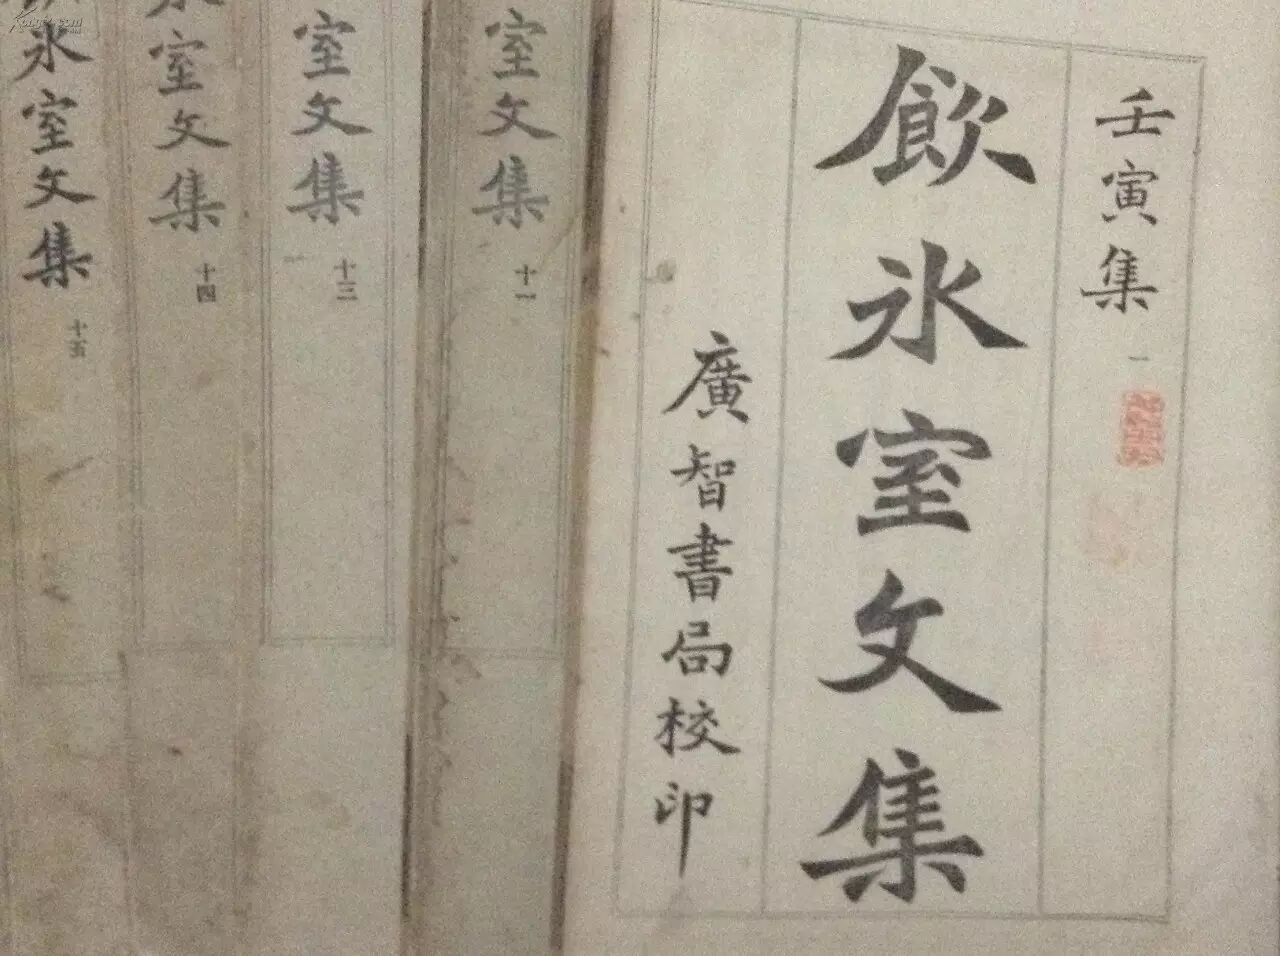 壬寅集 一
飲冰室文集
廣智書局校印
室文集
十一
室文集
十三
冰室文集
十四
冰室文集
十五